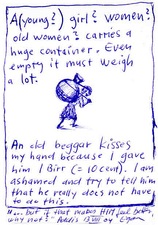 A(young?) girl? women?
old women? carries a
huge container. Even
empty it must weigh
a lot.
An old beggar kisses
my hand because I gave
him 1 Birr (= 10 cent). I am
ashamed and try to tell him
that he really does not have
to do this.
"... but if that makes HIM feel better,
why not?"